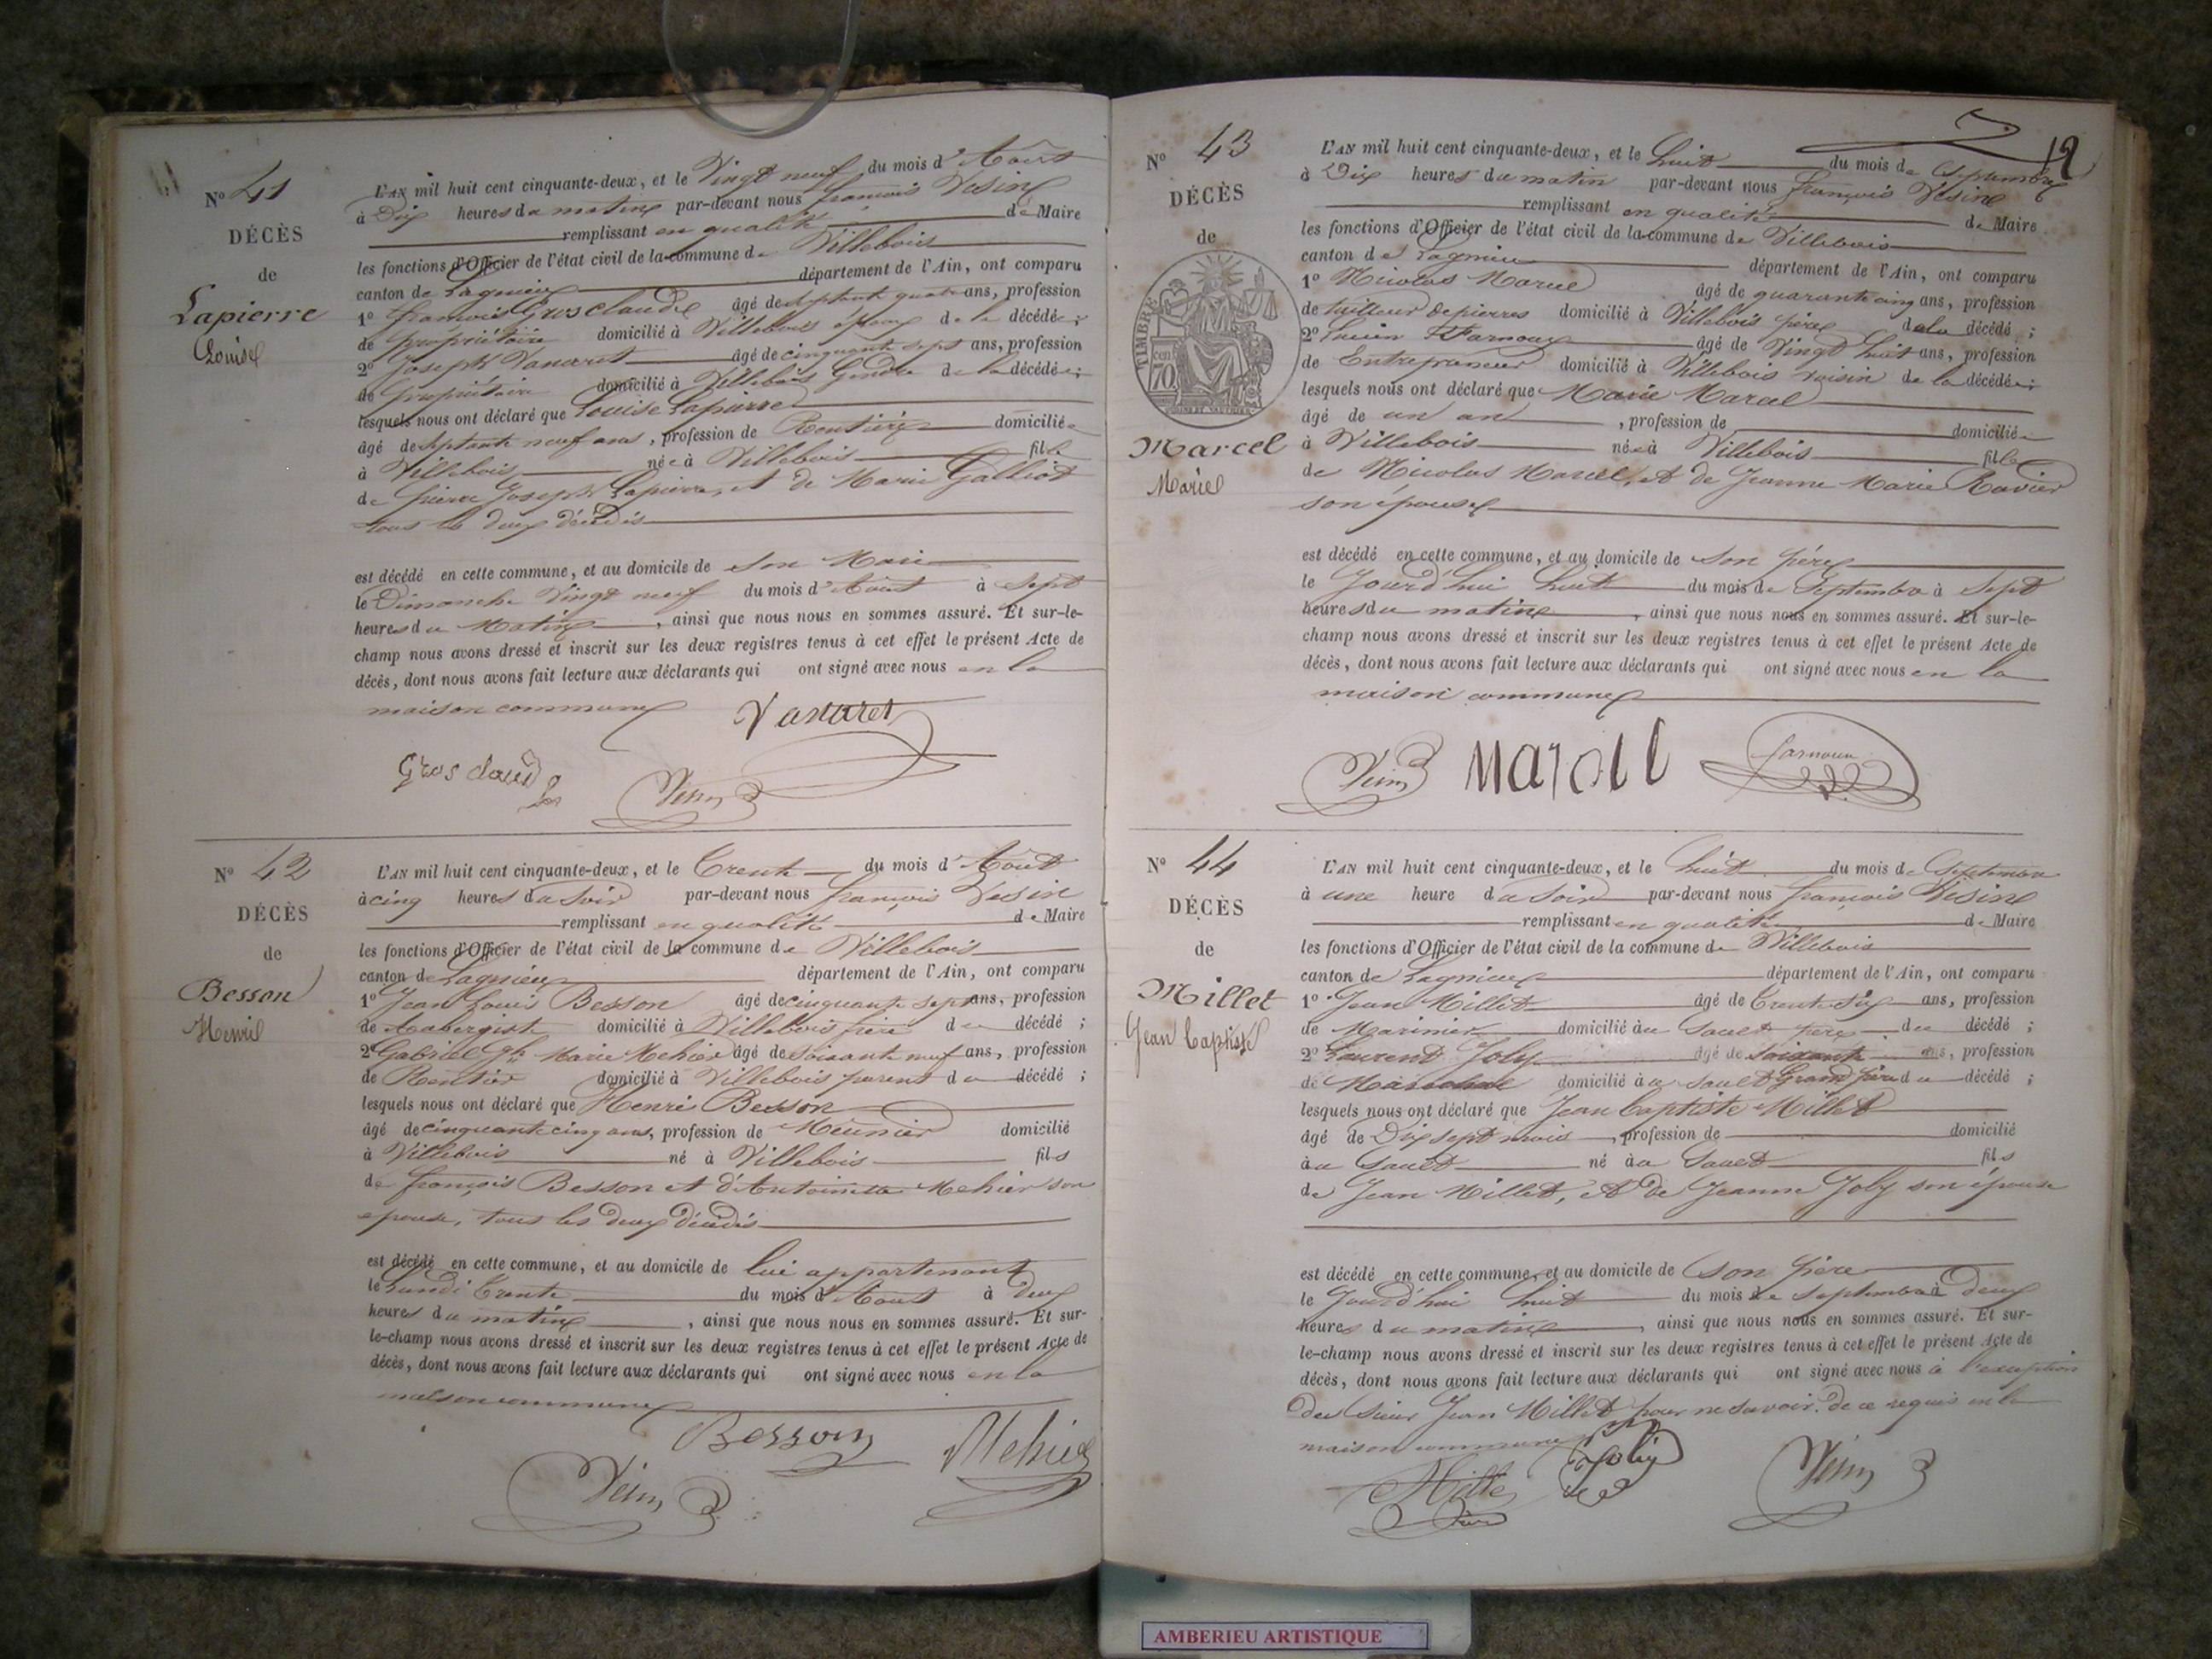 N° 41
DÉCÈS
de
Lapierre
Louise
L'AN mil huit cent cinquante-deux, et le Vingt neuf du mois d'Août
à Dix heures du matin par-devant nous françois Vésine
remplissant en qualité de Maire
les fonctions d'Officier de l'état civil de la commune de Villebois
canton de Lagnieu département de l'Ain, ont comparu
1° françois Grosclaude âgé de septante quatre ans, profession
de propriétaire domicilié à Villebois époux de la décédée ;
2° Joseph Vanaret âgé de cinquante sept ans, profession
de propriétaire domicilié à Villebois Gendre de la décédée ;
lesquels nous ont déclaré que Louise Lapierre
âgé de septante neuf ans, profession de Rentière domiciliée
à Villebois née à Villebois fille
de pierre Joseph Lapierre, et de Marie Galliot
tous les deux décédés
est décédé en cette commune, et au domicile de son Mari
le Dimanche Vingt neuf du mois d'Août à Sept
heures du Matin, ainsi que nous nous en sommes assuré. Et sur-le-
champ nous avons dressé et inscrit sur les deux registres tenus à cet effet le présent Acte de
décès, dont nous avons fait lecture aux déclarants qui ont signé avec nous en la
maison commune
Vanaret
Gros claude
Vésin
N° 42
DÉCÈS
de
Besson
Henri
L'AN mil huit cent cinquante-deux, et le Trente du mois d'Août
à cinq heures du Soir par-devant nous françois Vésin
remplissant en qualité de Maire
les fonctions d'Officier de l'état civil de la commune de Villebois
canton de Lagnieu département de l'Ain, ont comparu
1° Jean Louis Besson âgé de cinquante sept ans, profession
de Aubergiste domicilié à Villebois frère du décédé ;
2° Gabriel Marie Mehier âgé de soixante neuf ans, profession
de Rentier domicilié à Villebois parent du décédé ;
lesquels nous ont déclaré que Henri Besson
âgé de cinquante cinq ans, profession de Meunier domicilié
à Villebois né à Villebois fils
de françois Besson et d'Antoinette Mehier son
epouse, tous les deux décédés
est décédé en cette commune, et au domicile de lui appartenant
le Lundi Trente du mois d'Août à deux
heures du matin, ainsi que nous nous en sommes assuré. Et sur-
le-champ nous avons dressé et inscrit sur les deux registres tenus à cet effet le présent Acte de
décès, dont nous avons fait lecture aux déclarants qui ont signé avec nous en la
maison commune
Besson Mehier
Vésin
12
N° 43
DÉCÈS
de
TIMBRE
70
Marcel
Marie
L'AN mil huit cent cinquante-deux, et le huit du mois de Septembre
à Dix heures du matin par-devant nous françois Vésine
remplissant en qualité de Maire
les fonctions d'Officier de l'état civil de la commune de Villebois
canton de Lagnieu département de l'Ain, ont comparu
1° Nicolas Marcel âgé de quarante cinq ans, profession
de tailleur de pierres domicilié à Villebois père de la décédé ;
2° Lucien Farnoux âgé de Vingt huit ans, profession
de Entrepreneur domicilié à Villebois voisin de la décédée ;
lesquels nous ont déclaré que Marie Marcel
âgé de un an, profession de domiciliée
à Villebois née à Villebois fille
de Nicolas Marcel, et de Jeanne Marie Ravier
son épouse
est décédé en cette commune, et au domicile de son père
le Jourd'hui huit du mois de Septembre à Sept
heures du matin, ainsi que nous nous en sommes assuré. Et sur-le-
champ nous avons dressé et inscrit sur les deux registres tenus à cet effet le présent Acte de
décès, dont nous avons fait lecture aux déclarants qui ont signé avec nous en la
maison commune
Vésin Marcel farnoux
N° 44
DÉCÈS
de
Millet
Jean baptiste
L'AN mil huit cent cinquante-deux, et le huit du mois de Septembre
à une heure du Soir par-devant nous françois Vésine
remplissant en qualité de Maire
les fonctions d'Officier de l'état civil de la commune de Villebois
canton de Lagnieu département de l'Ain, ont comparu
1° Jean Millet âgé de Trente six ans, profession
de Marinier domicilié au Sault père du décédé ;
2° Laurent Joly âgé de soixante ans, profession
de Maréchal domicilié au Sault Grand père du décédé ;
lesquels nous ont déclaré que Jean baptiste Millet
âgé de Dix sept mois, profession de domicilié
au Sault né au Sault fils
de Jean Millet, et de Jeanne Joly son épouse
est décédé en cette commune, et au domicile de son père
le Jourd'hui huit du mois de Septembre à deux
heures du matin, ainsi que nous nous en sommes assuré. Et sur-
le-champ nous avons dressé et inscrit sur les deux registres tenus à cet effet le présent Acte de
décès, dont nous avons fait lecture aux déclarants qui ont signé avec nous à l'exception
du sieur Jean Millet pour ne savoir de ce requis en la
maison commune
Joly
Millet Vésin
AMBERIEU ARTISTIQUE